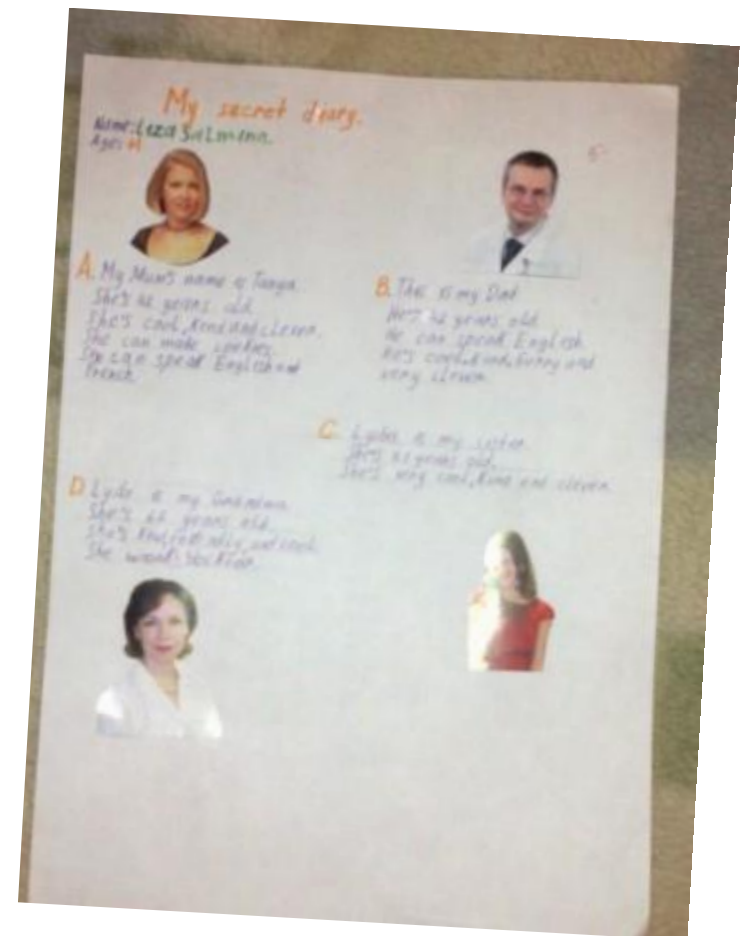 My secret diary.
Name: Leza Salmina.
Age:
5-
A. My Mum's name is Tanya.
She's 42 years old.
She's cool, kind and clever.
She can make cookies.
She can speak English and
French.
B. This is my Dad
He's 42 years old.
He can speak English.
He's cool, kind, funny and
very clever.
C. Lyda is my sister.
She's years old.
She's very cool, kind and clever.
D. Lyda is my Grandma.
She's 62 years old.
She's kind, and cool.
She